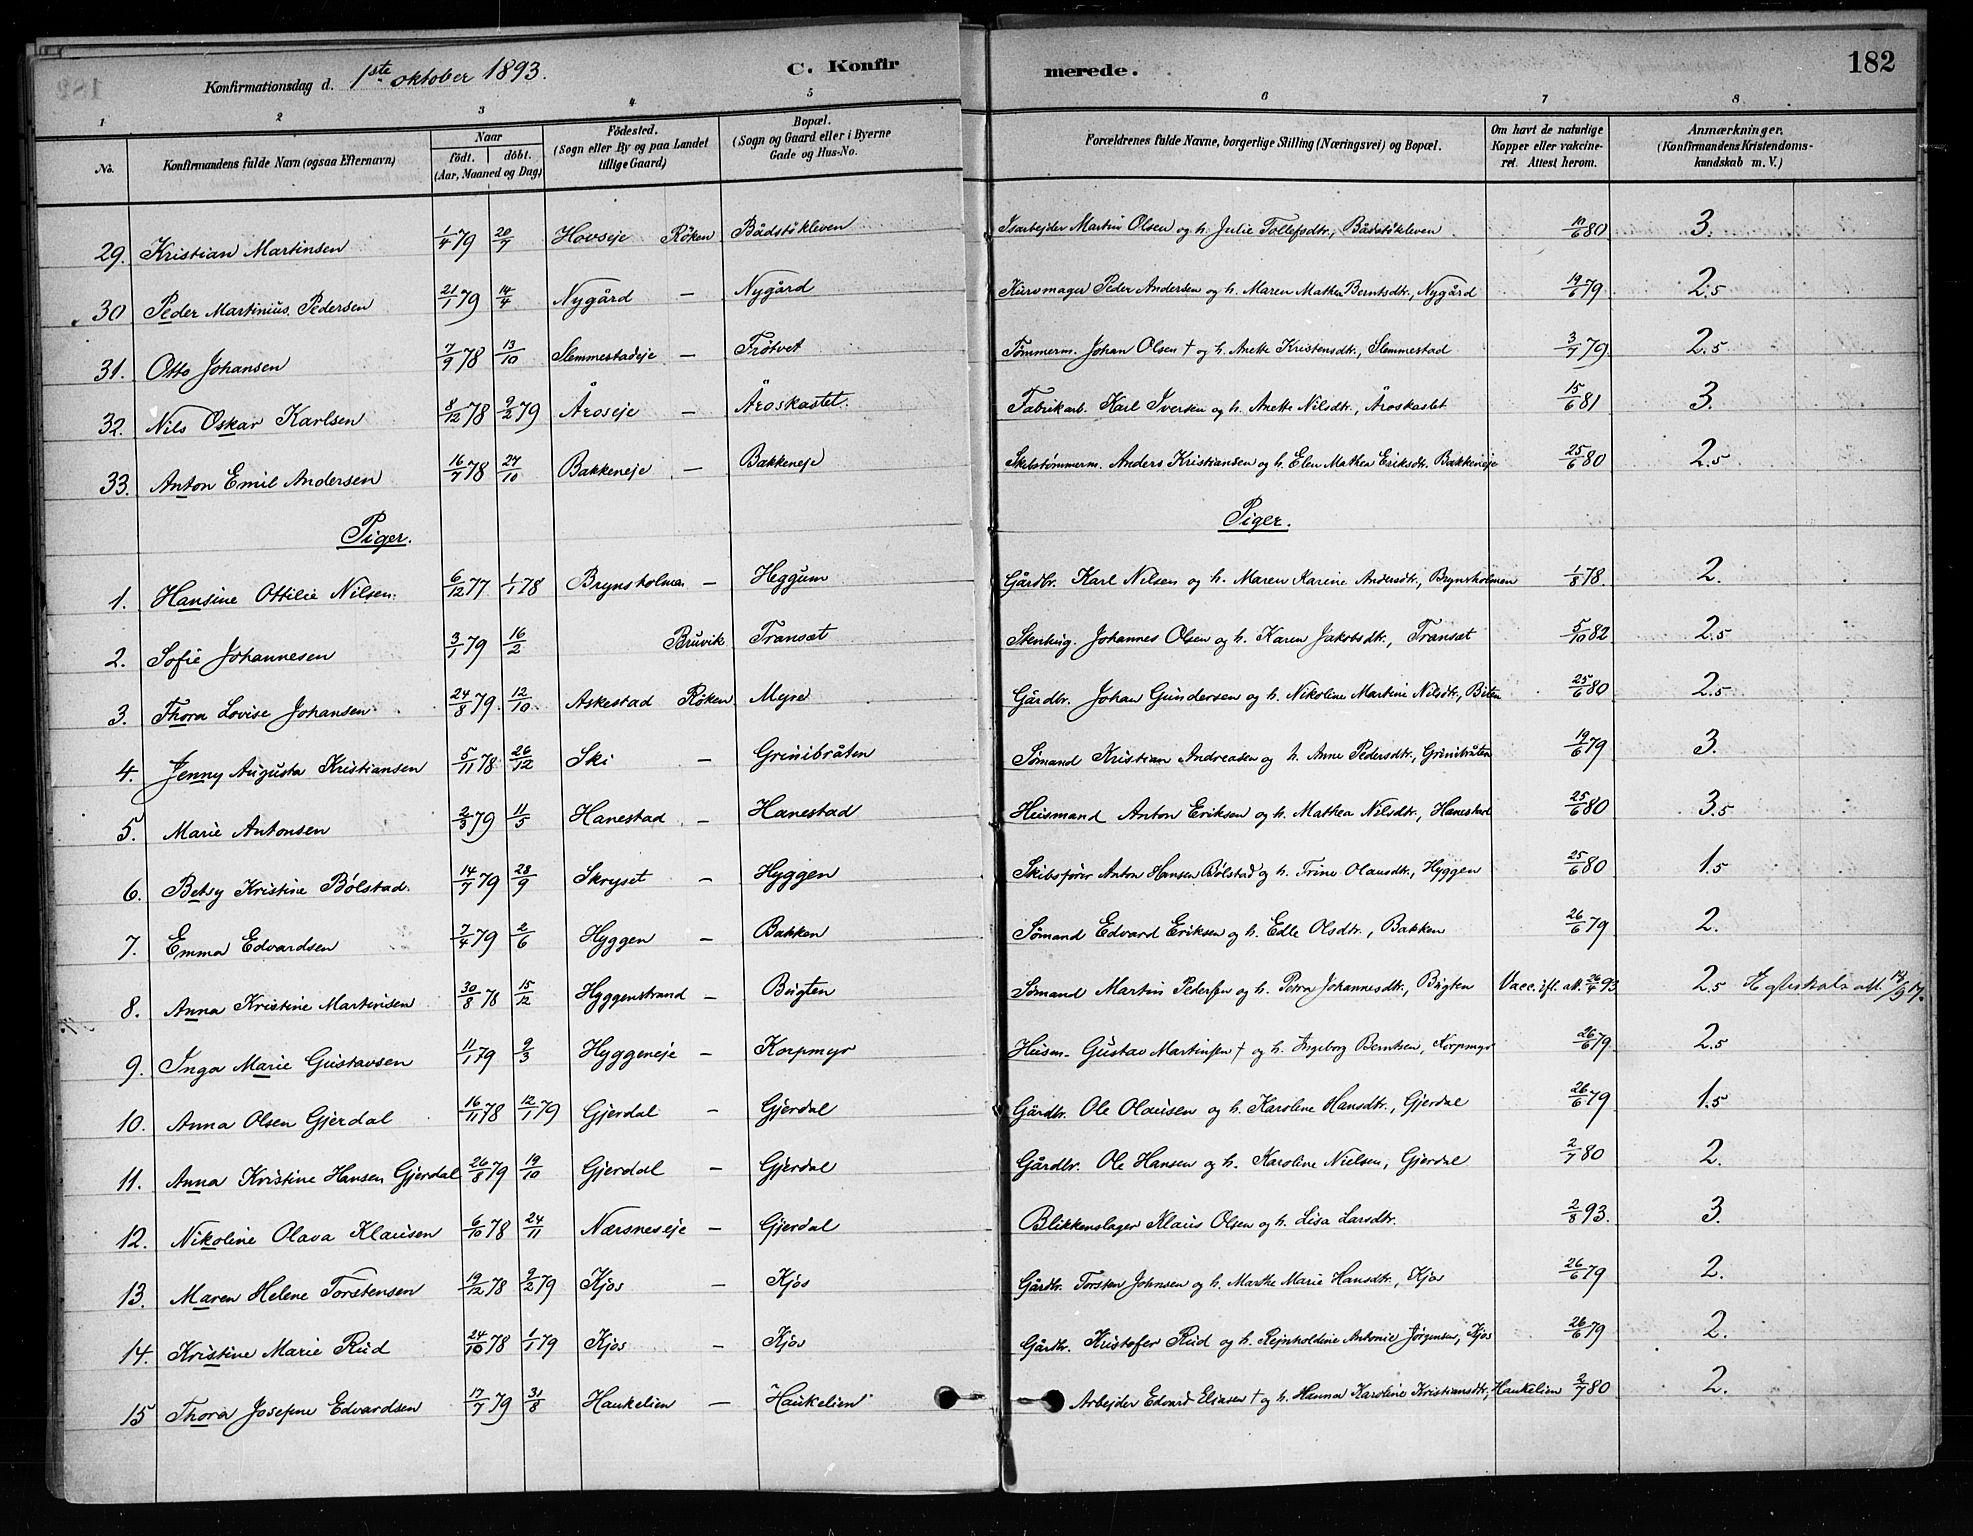 182
Konfirmationsdag d. 1ste oktober 1893. C. Konfirmerede.
1 2 3 4 5 6 7 8
No. Konfirmandens fulde Navn (ogsaa Efternavn) Naar födt. döbt. (Aar, Maaned og Dag) Födested. (Sogn eller By og paa Landet tillige Gaard) Bopæl. (Sogn og Gaard eller i Byerne Gade og Hus-No. Forældrenes fulde Navne, borgerlige Stilling (Næringsvei) og Bopæl. Om havt de naturlige Kopper eller vakcineret. Attest herom. Anmærkninger. (Konfirmandens Kristendomskundskab m. V.)
29. Kristian Martinsen 1/4 79 20/7 Hovseje Röken Bådstökleven Isarbejder Martin Olsen og h. Julie Tollefsdtr., Bådstökleven 11/6 80 3.
30 Peder Martinius Pedersen 21/1 79 14/4 Nygård — Nygård Kurvmager Peder Andersen og h. Maren Mathea Berntsdtr., Nygård 19/6 79 2.5
31. Otto Johansen 7/9 78 13/10 Slemmestadeje — Frötvet Tømmerm. Johan Olsen † og h. Anette Kristensdtr., Slemmestad 3/7 79 2.5
32. Nils Oskar Karlsen 8/12 78 9/2 79 Åroseje — Åroskastet. Fabrikarb. Karl Iversen og h. Anette Nilsdtr., Åroskastet 15/6 81 3.
33. Anton Emil Andersen 16/7 78 27/10 Bakkeneje — Bakkeneje Skibstømmerm. Anders Kristiansen og h. Elen Mathea Eriksdtr. Bakkeneje 25/6 80 2.5
Piger. Piger.
1. Hansine Ottilie Nilsen. 6/12 77 1/1 78 Brynsholmen — Heggum Gårdbr. Karl Nilsen og h. Maren Karine Andersdtr., Brynsholmen 1/8 78. 2.
2. Sofie Johannesen 3/1 79 16/2 Bruvik Transæt Stenhug. Johannes Olsen og h. Karen Jakobsdtr., Transæt 5/10 82 2.5
3. Thora Lovise Johansen 24/8 79. 12/10 Askestad Röken Myre Gårdbr. Johan Gundersen og h. Nikoline Martine Nilsdtr., Biten 25/6 80 2.5
4. Jenny Augusta Kristiansen 5/11 78 26/12 Ski — Grinibråten Sømand Kristian Andreasen og h. Anne Pedersdtr., Grinibråten 19/6 79 3.
5. Marie Antonsen 2/3 79 11/5 Hanestad — Hanestad Husmand Anton Eriksen og h. Mathea Nilsdtr., Hanestad 25/6 80 3.5
6. Betsy Kristine Bölstad. 14/7 79 28/9 Skryset — Hyggen Skibsfører Anton Hansen Bölstad og h. Trine Olausdtr., Hyggen 25/6 80 1.5
7. Emma Edvardsen 7/4 79 2/6 Hyggen — Bakken Sømand Edvard Eriksen og h. Edle Olsdtr., Bakken 26/6 79 2.
8. Anna Kristine Martinsen 30/8 78 15/12 Hyggenstrand — Bugten Sømand Martin Pedersen og h. Petra Johannesdtr., Bugten Vacc. ifl. att. 26/4 93 2.5
9. Inga Marie Gustavsen 11/1 79 9/3 Hyggeneje — Korpmyr Husm. Gustav Martinsen † og h. Ingeborg Berntsen, Korpmyr 26/6 79 2.5
10. Anna Olsen Gjerdal 16/11 78 12/1 79 Gjerdal — Gjerdal Gårdbr. Ole Olausen og h. Karoline Hansdtr., Gjerdal 26/6 79 1.5
11. Anna Kristine Hansen Gjerdal 26/8 79 19/10 Gjerdal — Gjerdal Gårdbr. Ole Hansen og h. Karoline Nielsen, Gjerdal 2/7 80 2.
12. Nikoline Olava Klausen 6/10 78 24/11 Nærsneseje — Gjerdal Blikkenslager Klaus Olsen og h. Lisa Larsdtr. 2/8 93. 3.
13. Maren Helene Torstensen 19/12 78 9/2 79 Kjos — Kjos Gårdbr. Torsten Johnsen og h. Marthe Marie Hansdtr., Kjos 26/6 79 2.
14. Kristine Marie Rud 24/10 78 1/1 79 Kjos — Kjos Gårdbr. Kristofer Rud og h. Rejnholdine Antonie Jörgensen, Kjos 26/6 79 2.
15 Thora Josefine Edvardsen 17/7 79 31/8 Haukelien — Haukelien Arbejder Edvard Eliasen † og h. Hanna Karoline Kristiansdtr., Haukelien 2/7 80 2.